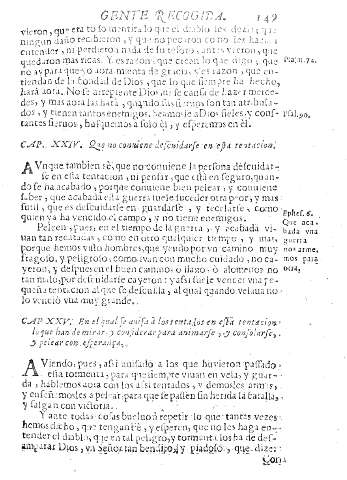 GENTE RECOGIDA. 149
vieron, que era todo mentira lo que el diablo les dezia: que
ningun daño recibieron, y que no pecaron como les hazia
entender, ni perdieron nada de su tesoro, antes vieron, que
quedaron mas ricas. Y es razon, que crean lo que digo, que
no ay para que yo aora mienta de gracia, y es razon, que en-
tiendan de la bondad de Dios, que lo que siempre ha hecho,
hará aora. No se arrepiente Dios, ni se cansa de hazer merce-
des, y mas aora las hará, quando sus siervos son tan atribula-
dos, y tienen tantos enemigos. Seamosle a Dios fieles, y cons-
tantes siervos, busquemos a solo él, y esperemos en él.
Psal. 74.
Psal. 90.
CAP. XXIV. Que no conviene descuidarse en esta tentacion.
AVnque tambien sè, que no conviene la persona descuidar-
se en esta tentacion, ni pensar, que está en seguro, quan-
do se ha acabado, porque conviene bien pelear, y conviene
saber, que acabada esta guerra suele suceder otra peor, y mas
sutil, que es descuidarse en guardarse, y tenerse, como
quien ya ha vencido el campo, y no tiene enemigos.
Peleen, pues, en el tiempo de la guerra, y acabada vi-
van tan recatadas, como en otro qualquier tiempo, y mas,
porque hemos visto hombres, que yendo por vn camino muy
fragoso, y peligroso, como ivan con mucho cuidado, no ca-
yeron, y despues en el buen camino, o llano, ò alomenos no
tan malo, por descuidarse cayeron: y assi suele vencer vna pe-
queña tentacion al que se descuida, al qual quando velava no
lo venciò vna muy grande.
Ephes. 6.
Que aca-
bada vna
guerra
nos arme-
mos para
otra.
CAP. XXV. En el qual se avisa à los tentados en esta tentacion
lo que han de mirar, y considerar para animarse, y consolarse,
y pelear con esperança.
AViendo, pues, assi avisado a los que huvieron passado
esta tormenta, para que siempre vivan en vela, y guar-
da, hablemos aora con los assi tentados, y demosles armas,
y enseñemosles a pelear, para que se passen sin herida la batalla,
y salgan con victoria.
Y ante todas cosas buelvo à repetir lo que tantas vezes
hemos dicho, que tengan fè, y esperen, que no les haga en-
tender el diablo, que en tal peligro, y tormento los ha de des-
amparar Dios, vn Señor tan bendito, y piadoso, que dize:
Con